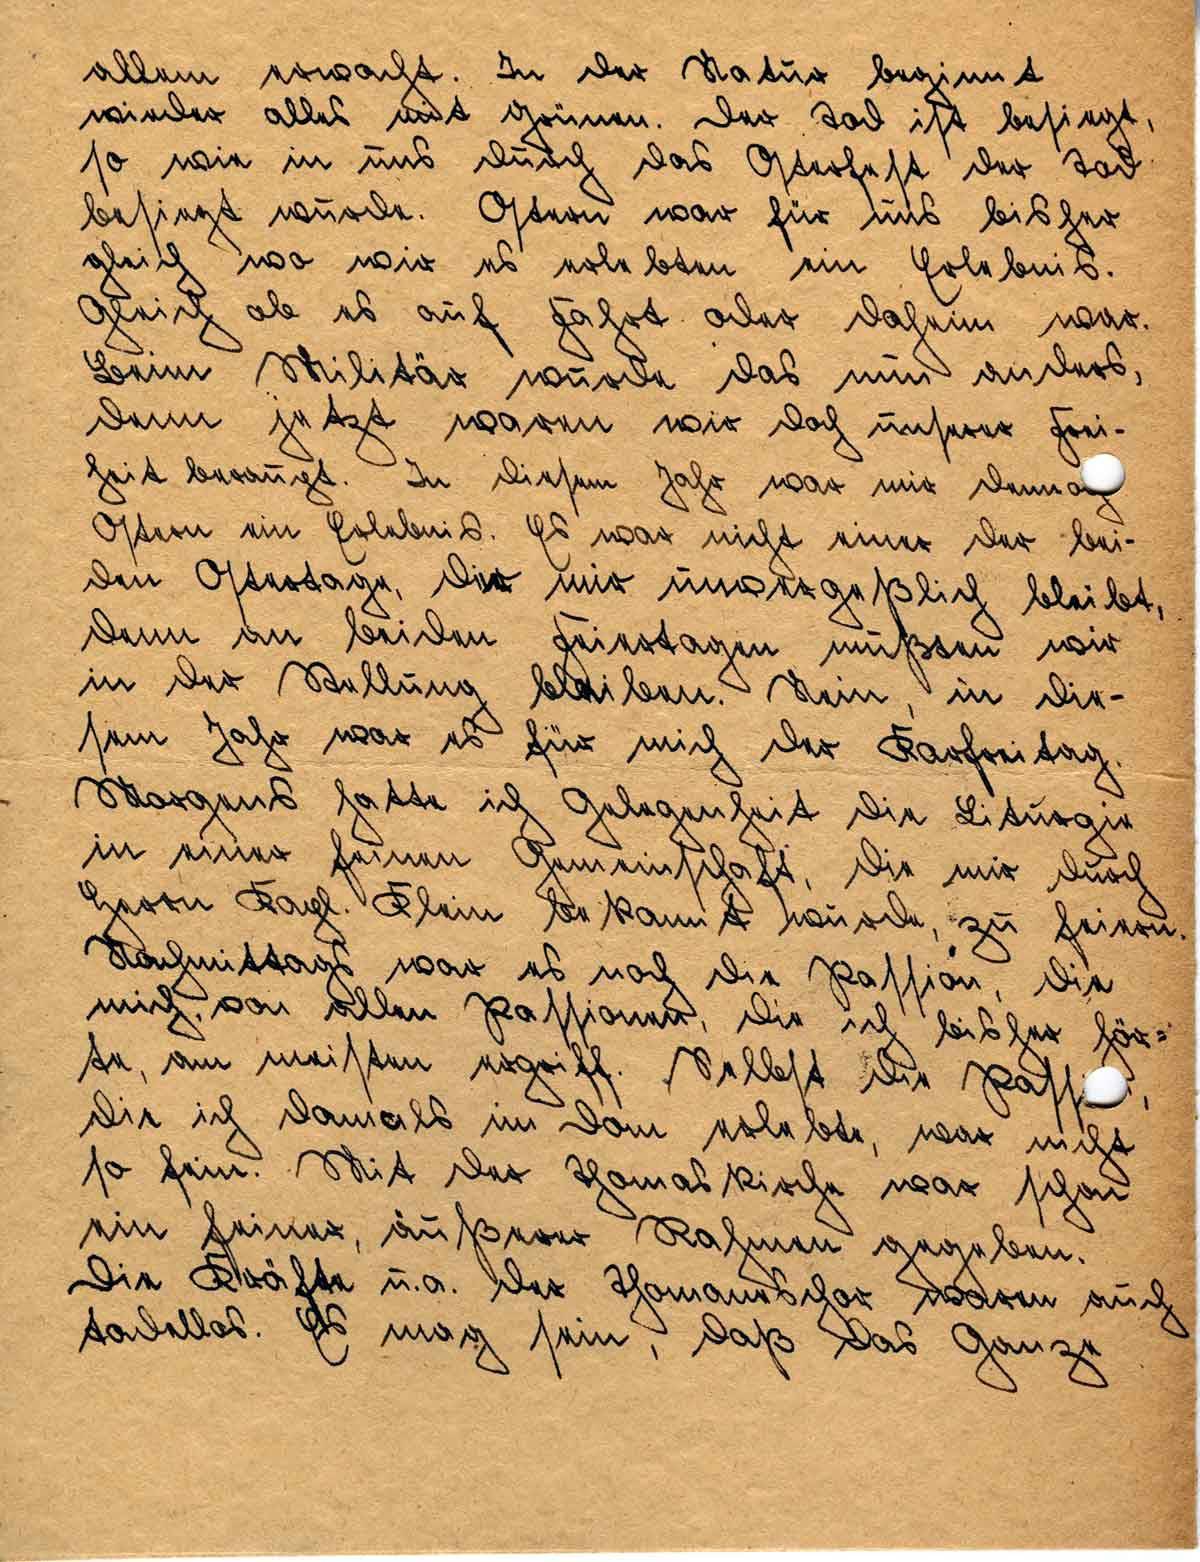 allem erwacht. In der Natur beginnt
wieder alles mit Grünen. Der Tod ist besiegt,
so wie in uns durch das Osterfest der Tod
besiegt wurde. Ostern war für uns bisher
gleich wo wir es erlebten ein Erlebnis.
Gleich ob es auf Fahrt oder daheim war.
Beim Militär wurde das nun anders,
denn jetzt waren wir doch unserer Frei-
heit beraugt. In diesem Jahr war mir dennoch
Ostern ein Erlebnis. Es war nicht einer der bei-
den Ostertage, der mir unvergeßlich bleibt,
denn an beiden Feiertagen mußten wir
in der Stellung bleiben. Nein, in die-
sem Jahr war es für mich der Karfreitag.
Morgens hatte ich Gelegenheit die Liturgie
in einer feinen Gemeinschaft, die mir durch
Herrn Kapl. Klein bekannt wurde, zu feiern.
Nachmittags war es noch die Passion, die
mich, von allen Passionen, die ich bisher hör=
te, am meisten ergriff. Selbst die Passion,
die ich damals im Dom erlebte, war nicht
so fein. Mit der Thomaskirche war schon
ein feiner, äußerer Rahmen gegeben.
Die Kräfte u.a. der Thomanerchor waren auch
tadellos. Es mag sein, daß das Ganze